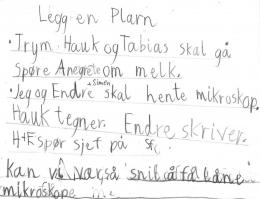 Legg en Plan
• Trym Hauk og Tabias skal gå
spøre Anegrete om melk.
• Jeg og Endre + Simen skal hente mikroskop.
Hauk tegner. Endre skriver.
H+E spør sjet på SFO
Kan vi værså snil å få låne
mikroskope